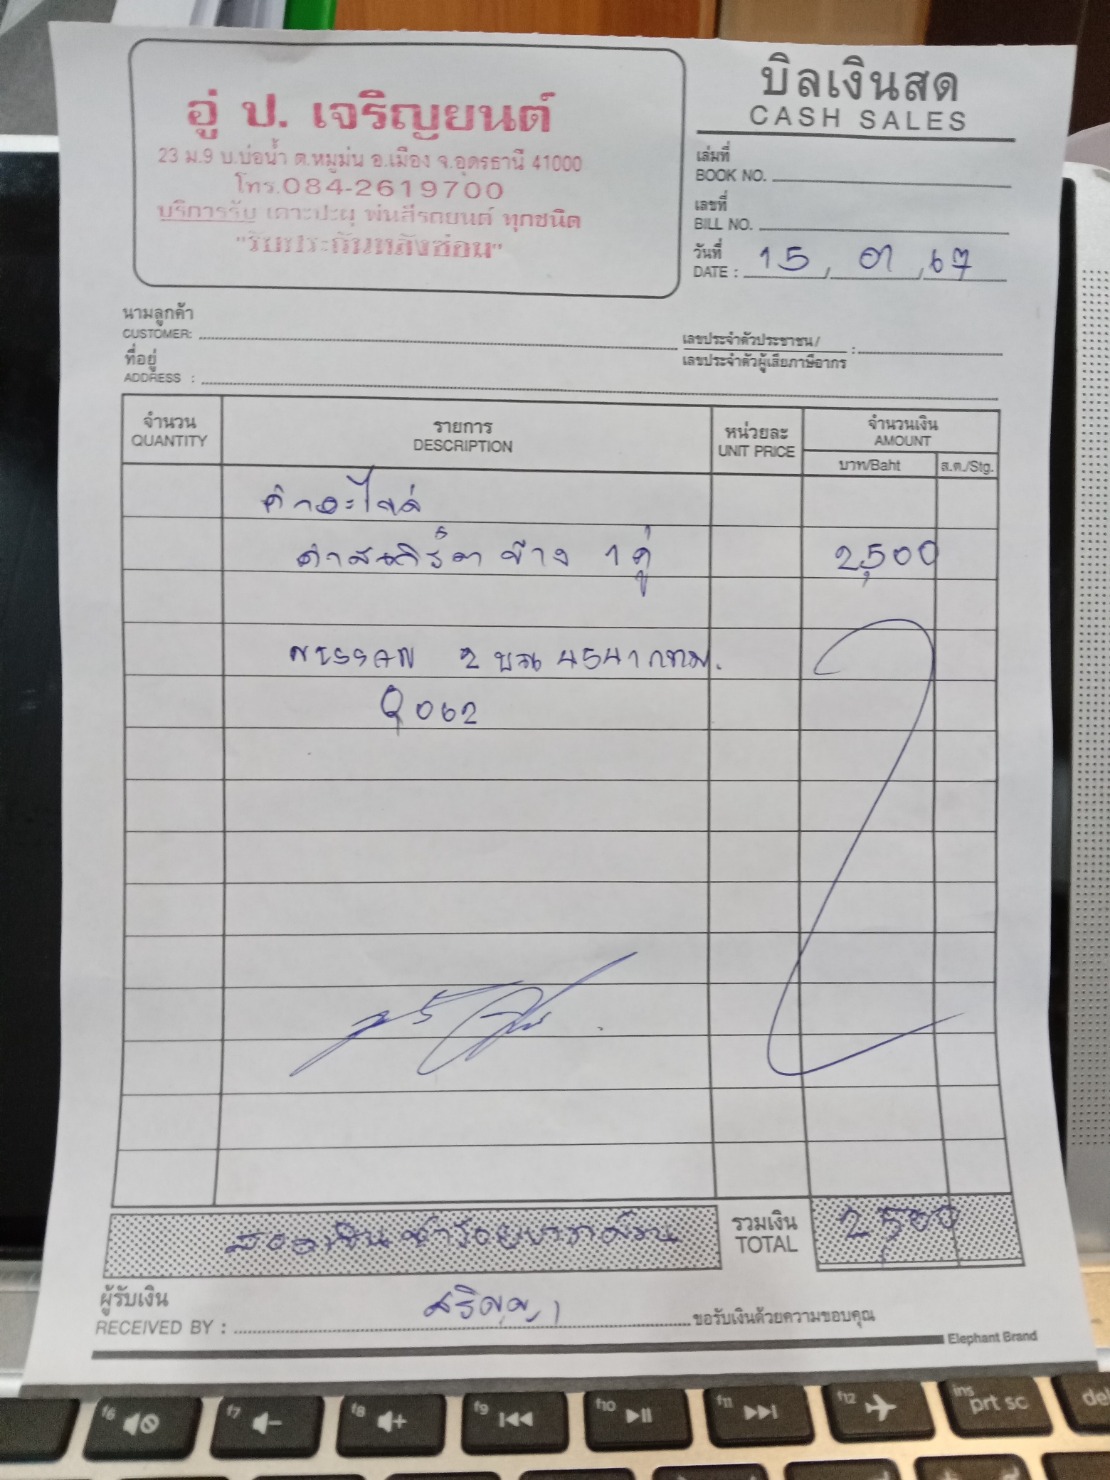 อู่ ป. เจริญยนต์
23 ม.9 บ.บ่อน้ำ ต.หมูม่น อ.เมือง จ.อุดรธานี 41000
โทร.084-2619700
บริการรับ เคาะปะผุ พ่นสีรถยนต์ ทุกชนิด
"รับประกันหลังซ่อม"
บิลเงินสด
CASH SALES
เล่มที่
BOOK NO.
เลขที่
BILL NO.
วันที่
DATE : 15, 01, 67
นามลูกค้า
CUSTOMER:
เลขประจำตัวประชาชน/
เลขประจำตัวผู้เสียภาษีอากร :
ที่อยู่
ADDRESS :
จำนวน รายการ หน่วยละ จำนวนเงิน
QUANTITY DESCRIPTION UNIT PRICE AMOUNT
บาท/Baht ส.ต./Stg.
ค่าอะไหล่
ข้าง 1 คู่ 2,500
NISSAN 2 ขฒ 4541 กทม.
Q062
สองพันห้าร้อยบาทถ้วน
รวมเงิน
TOTAL 2,500
ผู้รับเงิน
RECEIVED BY : ศริญญา ขอรับเงินด้วยความขอบคุณ
Elephant Brand
f6
f7
f8
f9
f10
f11
f12
ins
prt sc
del